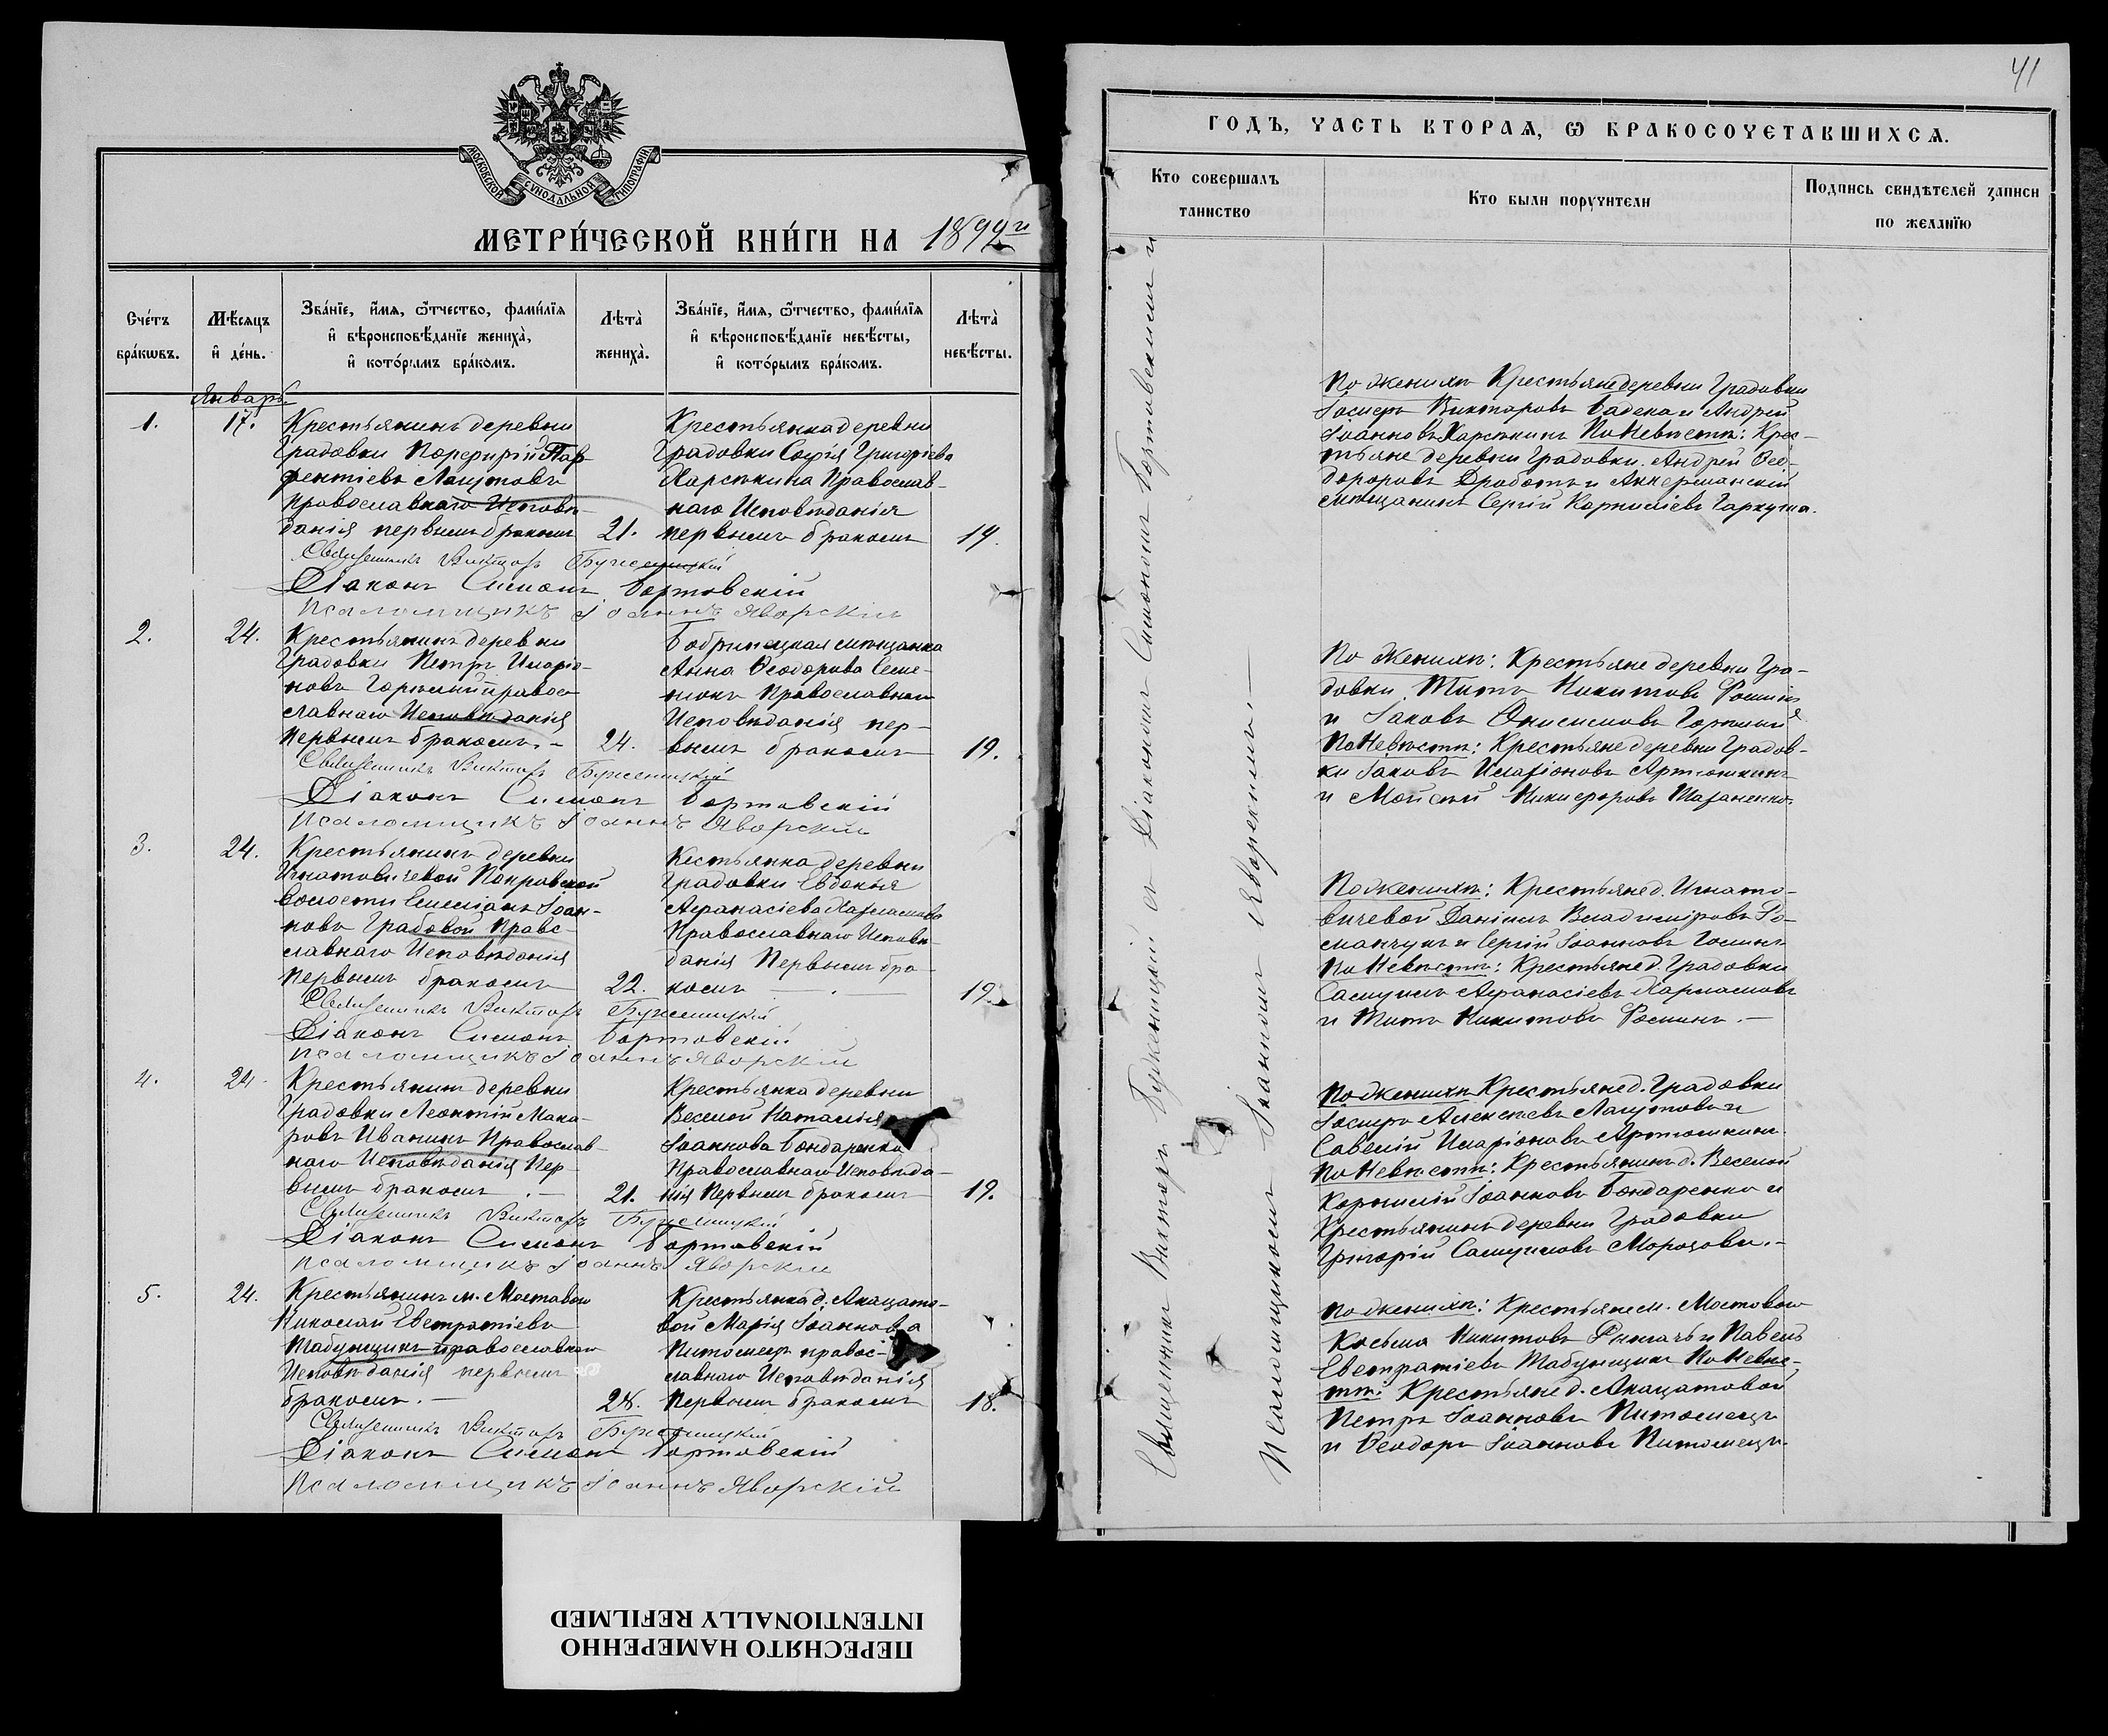 МОСКОВСКОЙ СУНОДАЛЬНОЙ ТИПОГРАФІИ
МЕТРИ́ЧЕСКОЙ КНИ́ГИ НА 1899 г
Сче́тъ бра́кѡвъ.
Мѣ́сяцъ и҆ де́нь.
Зва́нїе, и҆́мя, ѻ҆́тчество, фами́лїя
и҆ вѣроисповѣ́данїе жениха̀,
и҆ кото́рымъ бра́комъ.
Лѣта̀ жениха̀.
Зва́нїе, и҆́мя, ѻ҆́тчество, фами́лїя
и҆ вѣроисповѣ́данїе невѣ́сты,
и҆ кото́рымъ бра́комъ.
Лѣта̀ невѣ́сты.
Январь
1.
17.
Крестьянинъ деревни
Градовки Порфирій Пар-
фентіевъ Лагутовъ
православнаго Исповѣ-
данія первымъ бракомъ
21.
Крестьянка деревни
Градовки Софія Григоріева
Карѣкина Православ-
наго Исповѣданія
первымъ бракомъ
19.
Священникъ Викторъ Буженицкій
Діаконъ Симонъ Бортовскій
Псаломщикъ Іоаннъ Яворскій
2.
24.
Крестьянинъ деревни
Градовки Петръ Иларіо-
новъ Горькій право-
славнаго Исповѣданія
первымъ бракомъ. –
24.
Бобринецкая мѣщанка
Анна Ѳеодорова Семе-
нюкъ Православнаго
Исповѣданія пер-
вымъ бракомъ
19.
Священникъ Викторъ Буженицкій
Діаконъ Симонъ Бортовскій
Псаломщикъ Іоаннъ Яворскій
3.
24.
Крестьянинъ деревни
Игнатовичевой Покровской
Волости Емиліанъ Іоан-
новъ Градовой Право-
славнаго Исповѣданія
первымъ бракомъ
22.
Кестьянка деревни
Градовки Евдокія
Аѳанасіева Харламова
Православнаго Исповѣ-
данія Первымъ бра-
комъ
19.
Священникъ Викторъ Буженицкій
Діаконъ Симонъ Бортовскій
Псаломщикъ Іоаннъ Яворскій
4.
24.
Крестьянинъ деревни
Градовки Леонтій Мака-
ровъ Иванинъ Православ-
наго Исповѣданія Пер-
вымъ бракомъ. –
21.
Крестьянка деревни
Веселой Наталія
Іоаннова Бондаренко
Православнаго Исповѣда-
нія Первымъ бракомъ
19.
Священникъ Викторъ Буженицкій
Діаконъ Симонъ Бортовскій
Псаломщикъ Іоаннъ Яворскій
5.
24.
Крестьянинъ м. Мостовою
Николай Евстратіевъ
Табунщикъ православнаго
Исповѣданія первымъ
бракомъ. –
28.
Крестьянка д. Акацато-
вой Марія Іоаннова
Питомецъ правос-
лавнаго Исповѣданія
Первымъ бракомъ
18.
Священникъ Викторъ Буженицкій
Діаконъ Симонъ Бортовскій
Псаломщикъ Іоаннъ Яворскій
41
ГОДЪ, ЧАСТЬ ВТОРАѦ, Ѡ БРАКОСОЧЕТАВШИХСѦ.
Кто совершалъ таинство
Кто были поручители
Подпись свидѣтелей записи по желанїю
Священникъ Викторъ Буженицкій съ Діакономъ Симономъ Бортовскимъ и
Псаломщикомъ Іоанномъ Яворскимъ. –
По женихѣ Крестьяне деревни Градовки
Іосифъ Викторовъ Бадека и Андрей
Іоанновъ Карѣкинъ По Невѣстѣ: Крес-
тьяне деревни Градовки. Андрей Ѳео-
доровъ Дроботъ и Аккерманскій
мѣщанинъ Сергій Корниліевъ Гаркуша.
По Женихѣ: Крестьяне деревни Гра-
довки Титъ Никитовъ Ѳоминъ
и Іаковъ Онисимовъ Горькій
По Невѣстѣ: Крестьяне деревни Градов-
ки Іаковъ Иларіоновъ Артюшкинъ
и Мойсей Никифоровъ Шараненко
По женихѣ: Крестьяне д. Игнато-
вичевой Даніилъ Владиміровъ Ро-
манчукъ и Сергій Іоанновъ Гоминъ
По Невѣстѣ: Крестьяне д. Градовки
Самуилъ Аѳанасіевъ Харламовъ
и Титъ Никитовъ Ѳоминъ. –
По женихѣ Крестьяне д. Градовки
Іосифъ Алексѣевъ Лагутовъ и
Савелій Иларіоновъ Артюшкинъ.
По Невѣстѣ: Крестьянинъ д. Веселой
Корнилій Іоанновъ Бондаренко и
Крестьянинъ деревни Градовки
Григорій Самуиловъ Морозовъ. –
По женихѣ: Крестьяне м. Мостового
Косьма Никитовъ и Павелъ
Евстратіевъ Табунщикъ По Невѣс-
тѣ: Крестьяне д. Акацатовой
Петръ Іоанновъ Питомецъ
и Ѳеодоръ Іоанновъ Питомецъ.
ПЕРЕСНЯТО НАМЕРЕННО
INTENTIONALLY REFILMED